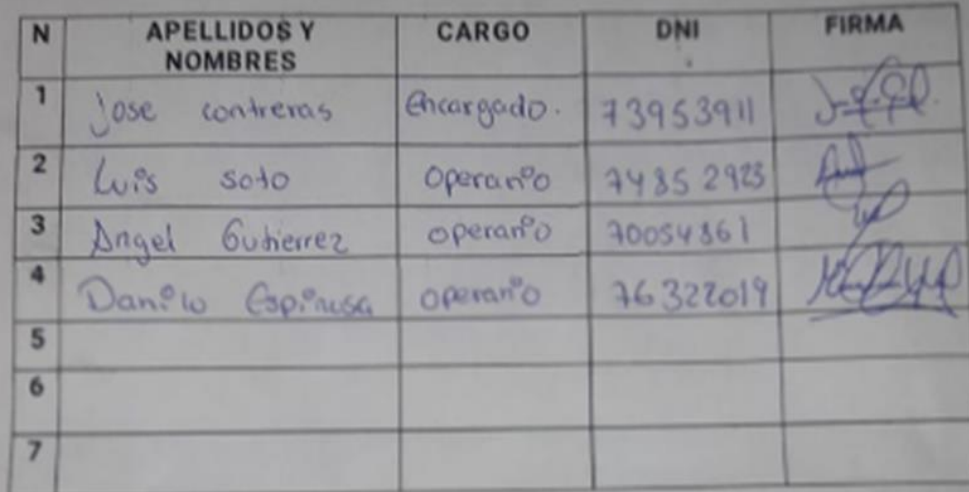 N APELLIDOS Y NOMBRES CARGO DNI FIRMA
1 Jose contreras Encargado. 73953911
2 Luis soto operario 74852923
3 Angel Gutierrez operario 70054861
4 Danilo Espinosa operario 76322019
5
6
7